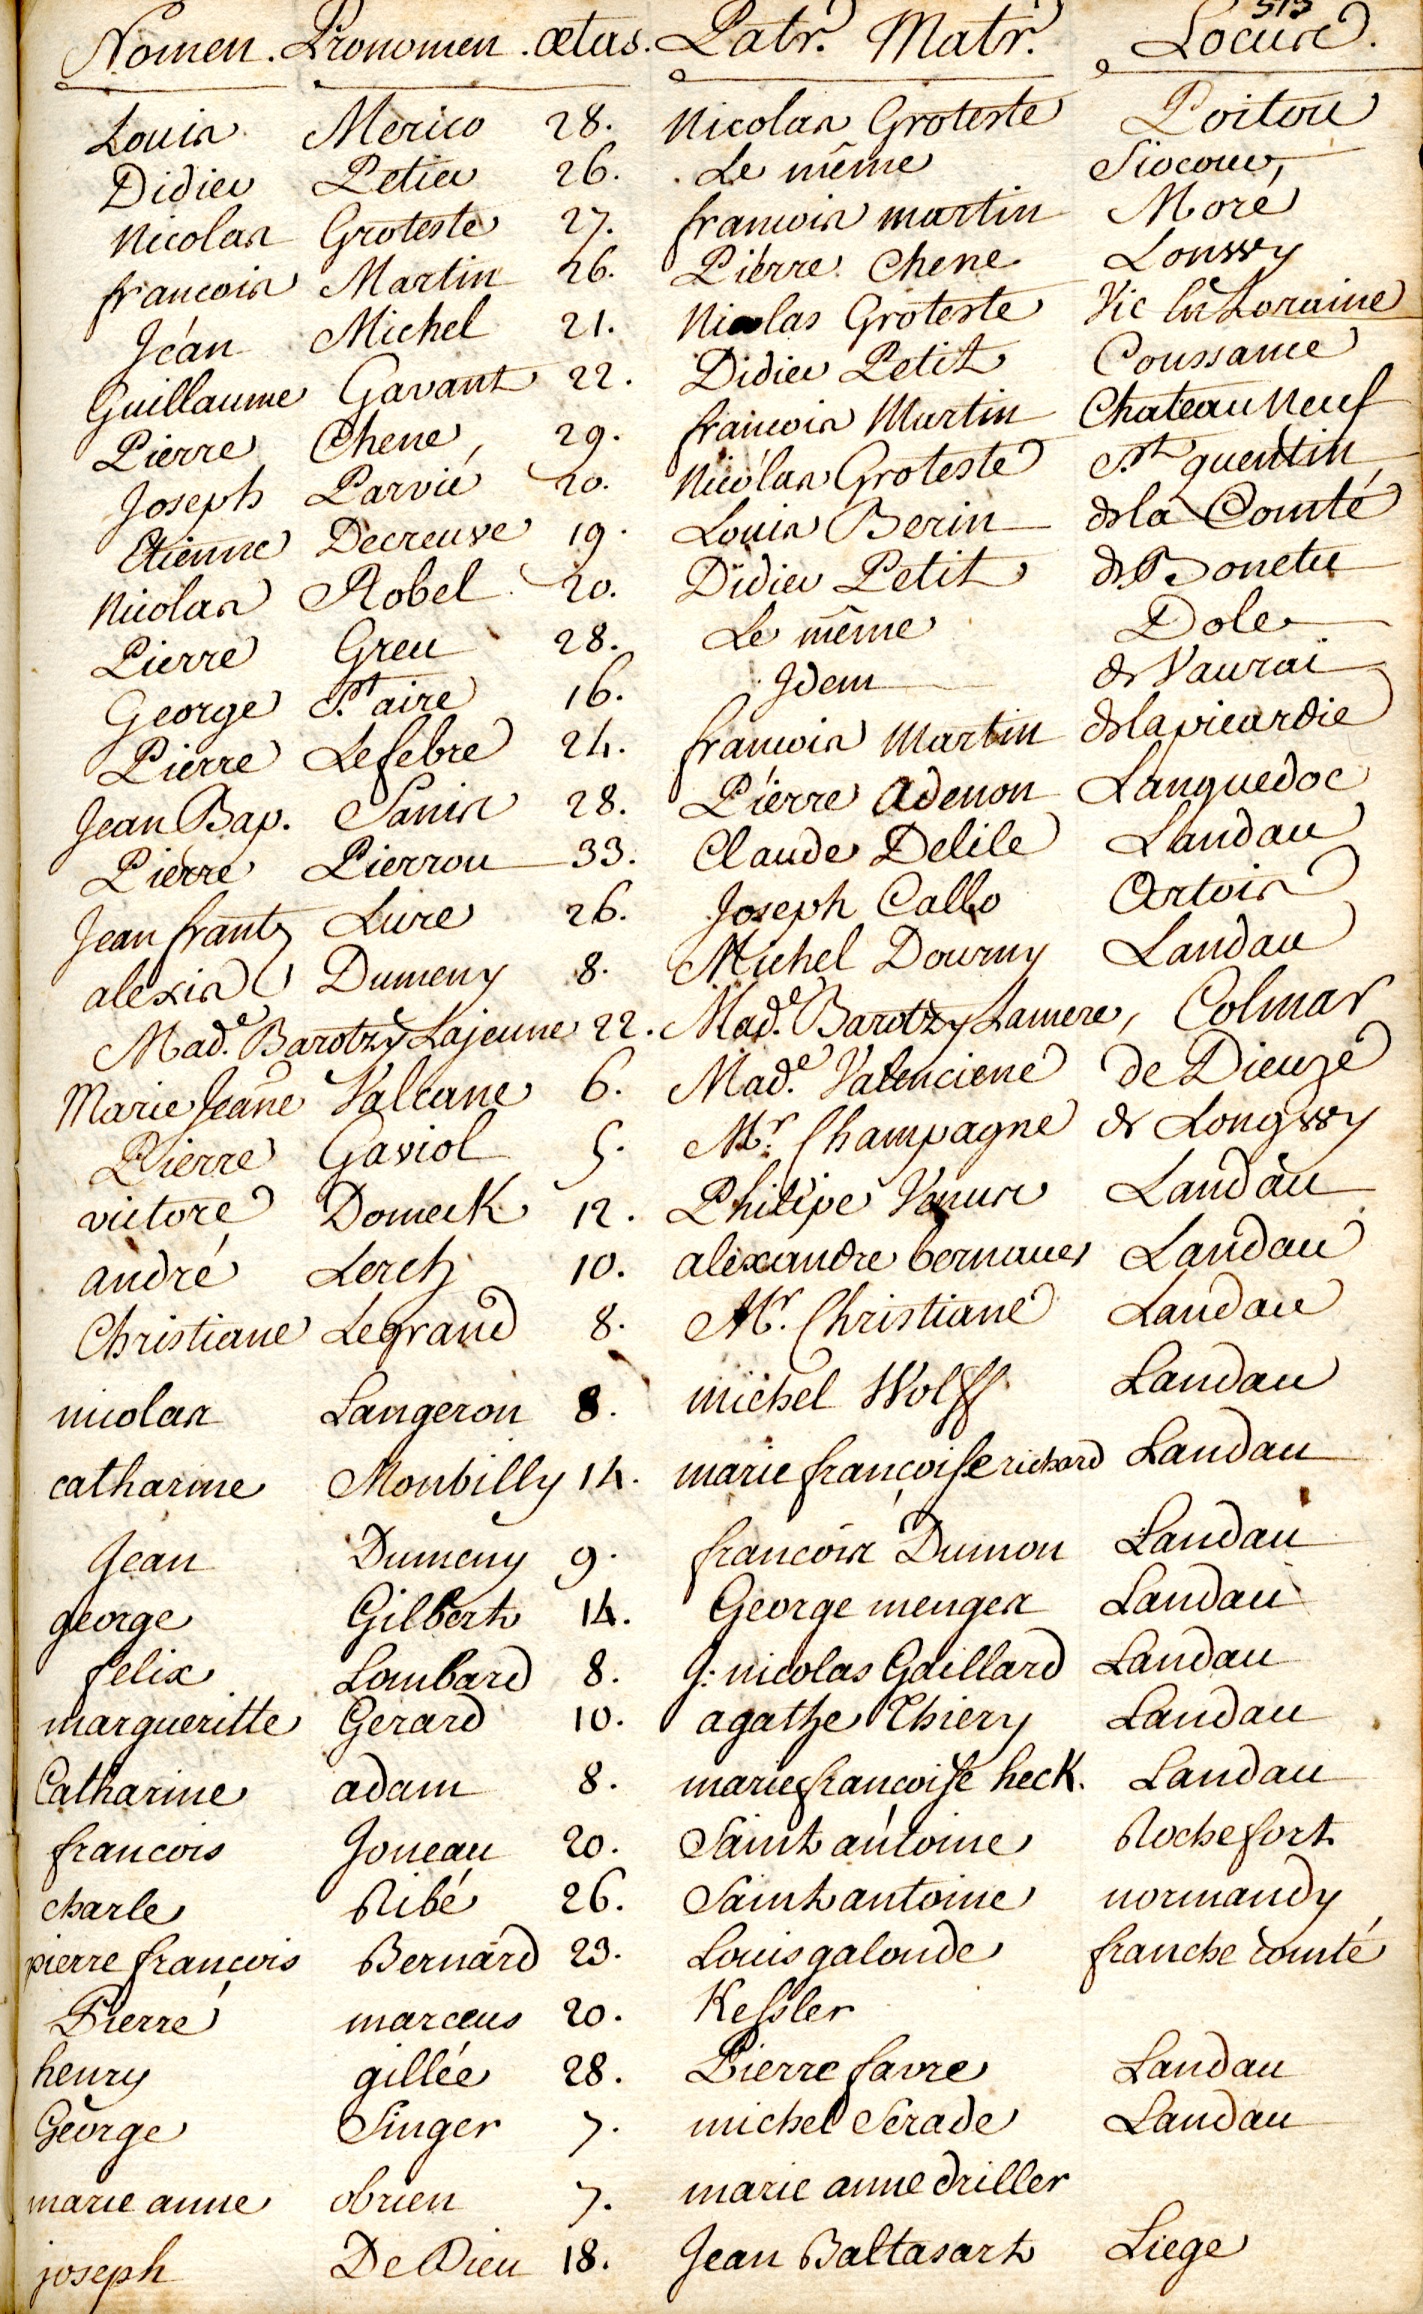 513
Nomen. Pronomen. ætas. Patr. Matr. Locus.
Louis Merico 28. Nicolas Groteste Poitou
Didier Petier 26. Le même Siocour,
Nicolas Groteste 27. francois martin Moré
francois Martin 26. Piérre Chene Lonwy
Jéan Michel 21. Nicolas Groteste Vic en Loraine
Guillaume Gavant 22. Didier Petit Coussance
Pierre Chene, 29. francois Martin Chateau Neuf
Joseph Parvié 20. Nicolas Groteste St. quentin
Etienne Decreuse 19. Louis Berin de la Comté
Nicolas Robel 20. Didier Petit de Bonetie
Pierre Greu 28. Le même Dole
George St. aire 16. Idem de Vaurai
Pierre Lefebre 24. francois Martin de la picardie
Jean Bap. Sanis 28. Piérre Adenon Languedoc
Pierre Pierron 33. Claude Delile Landau
Jean frantz Lure 26. Joseph Callo Artois
alexis Dumeny 8. Michel Dourny Landau
Made. Barotzy Lajeune 22. Made. Barotzy Lamere, Colmar
Marie Jeane Valcane 6. Made. Valenciene de Dieuze
Pierre Gaviol 5. Mr. Champagne de Longwy
victore Domeck 12. Philipe Venus Landau
andré Lerch 10. alexandre bernauer Landau
Christiane Legrand 8. Mr. Christiane Landau
nicolas Langeron 8. michel Wolff Landau
catharine Monbilly 14. marie françoise richard Landau
Jean Dumeny 9. francois Dumon Landau
george Gilbert 14. George menges Landau
felix Lombard 8. J: nicolas Gaillard Landau
margueritte Gerard 10. agathe Thiery Landau
Catharine adam 8. marie francoise heck. Landau
francois Joneau 20. Saint antoine Rochefort
charle Ribé 26. Saint antoine normandy
pierre francois Bernard 23. Louis galonde franche comté
Pierre marceus 20. Kessler
henry gillée 28. Pierre favre Landau
George Singer 7. michel Serade Landau
marie anne obrien 7. marie anne driller
joseph De Dieu 18. Jean Baltasart Liege